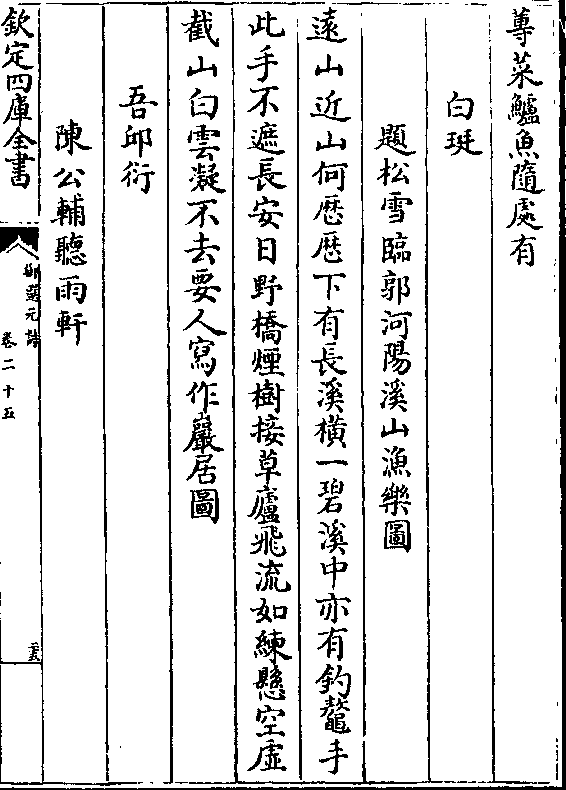 蓴菜鱸魚隨處有
白珽
題松雪臨郭河陽溪山漁樂圖
遠山近山何歴歴下有長溪橫一碧溪中亦有釣鼇手
此手不遮長安日野橋煙樹接草廬飛流如練懸空虛
截山白雲凝不去要人寫作巖居圖
吾邱衍
陳公輔聽雨軒
欽定四庫全書
御選元詩
卷二十五